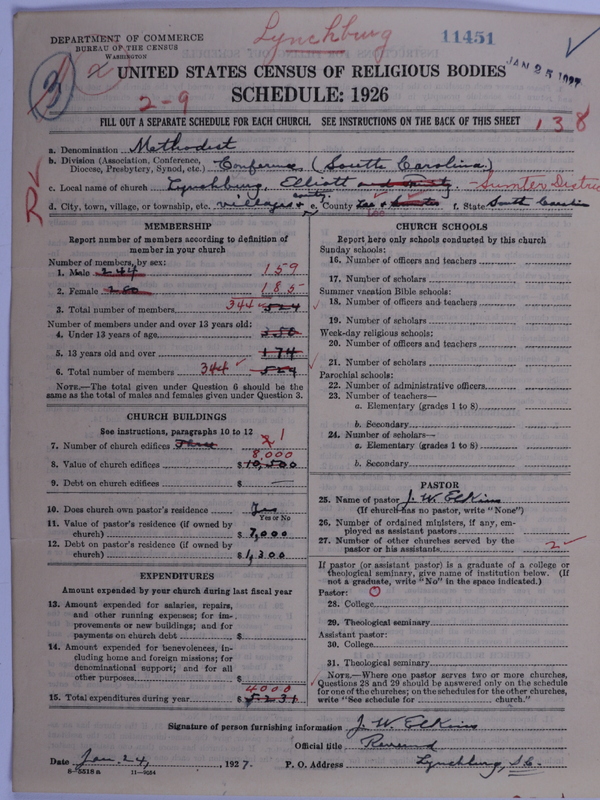 Lynchburg
DEPARTMENT OF COMMERCE
BUREAU OF THE CENSUS
WASHINGTON
11451
JAN 25 1927
3
UNITED STATES CENSUS OF RELIGIOUS BODIES
SCHEDULE: 1926
2-9
FILL OUT A SEPARATE SCHEDULE FOR EACH CHURCH. SEE INSTRUCTIONS ON THE BACK OF THIS SHEET
138
a. Denomination Methodist
b. Division (Association, Conference, Diocese, Presbytery, Synod, etc.) Conference (South Carolina)
c. Local name of church Lynchburg, Elliott - Sumter District
d. City, town, village, or township, etc. villages & country e. County Lee & Sumter f. State South Carolina
MEMBERSHIP
Report number of members according to definition of
member in your church
Number of members, by sex:
1. Male 244 159
2. Female 280 185
3. Total number of members 344 524
Number of members under and over 13 years old:
4. Under 13 years of age 350
5. 13 years old and over 174
6. Total number of members 344 524
NOTE.—The total given under Question 6 should be the
same as the total of males and females given under Question 3.
CHURCH BUILDINGS
See instructions, paragraphs 10 to 12
7. Number of church edifices Three 1
8,000
8. Value of church edifices $10,500
9. Debt on church edifices $ —
10. Does church own pastor's residence Yes
Yes or No
11. Value of pastor's residence (if owned by
church) $7,000
12. Debt on pastor's residence (if owned by
church) $1,300
EXPENDITURES
Amount expended by your church during last fiscal year
13. Amount expended for salaries, repairs,
and other running expenses; for im-
provements or new buildings; and for
payments on church debt $
14. Amount expended for benevolences, in-
cluding home and foreign missions; for
denominational support; and for all
other purposes $
4000
15. Total expenditures during year $5231
CHURCH SCHOOLS
Report here only schools conducted by this church
Sunday schools:
16. Number of officers and teachers
17. Number of scholars
Summer vacation Bible schools:
18. Number of officers and teachers
19. Number of scholars
Week-day religious schools:
20. Number of officers and teachers
21. Number of scholars
Parochial schools:
22. Number of administrative officers
23. Number of teachers—
a. Elementary (grades 1 to 8)
b. Secondary
24. Number of scholars—
a. Elementary (grades 1 to 8)
b. Secondary
PASTOR
25. Name of pastor J. W. Elkins
(If church has no pastor, write "None")
26. Number of ordained ministers, if any, em-
ployed as assistant pastors
27. Number of other churches served by the
pastor or his assistants 2
If pastor (or assistant pastor) is a graduate of a college or
theological seminary, give name of institution below. (If
not a graduate, write "No" in the space indicated.)
Pastor: O
28. College
29. Theological seminary
Assistant pastor:
30. College
31. Theological seminary
NOTE.—Where one pastor serves two or more churches,
Questions 28 and 29 should be answered only on the schedule
for one of the churches; on the schedules for the other churches,
write "See schedule for church."
Signature of person furnishing information J. W. Elkins
Official title Reverend
Date Jan. 24, 1927. P. O. Address Lynchburg, S.C.
6—5518 a 11—9054